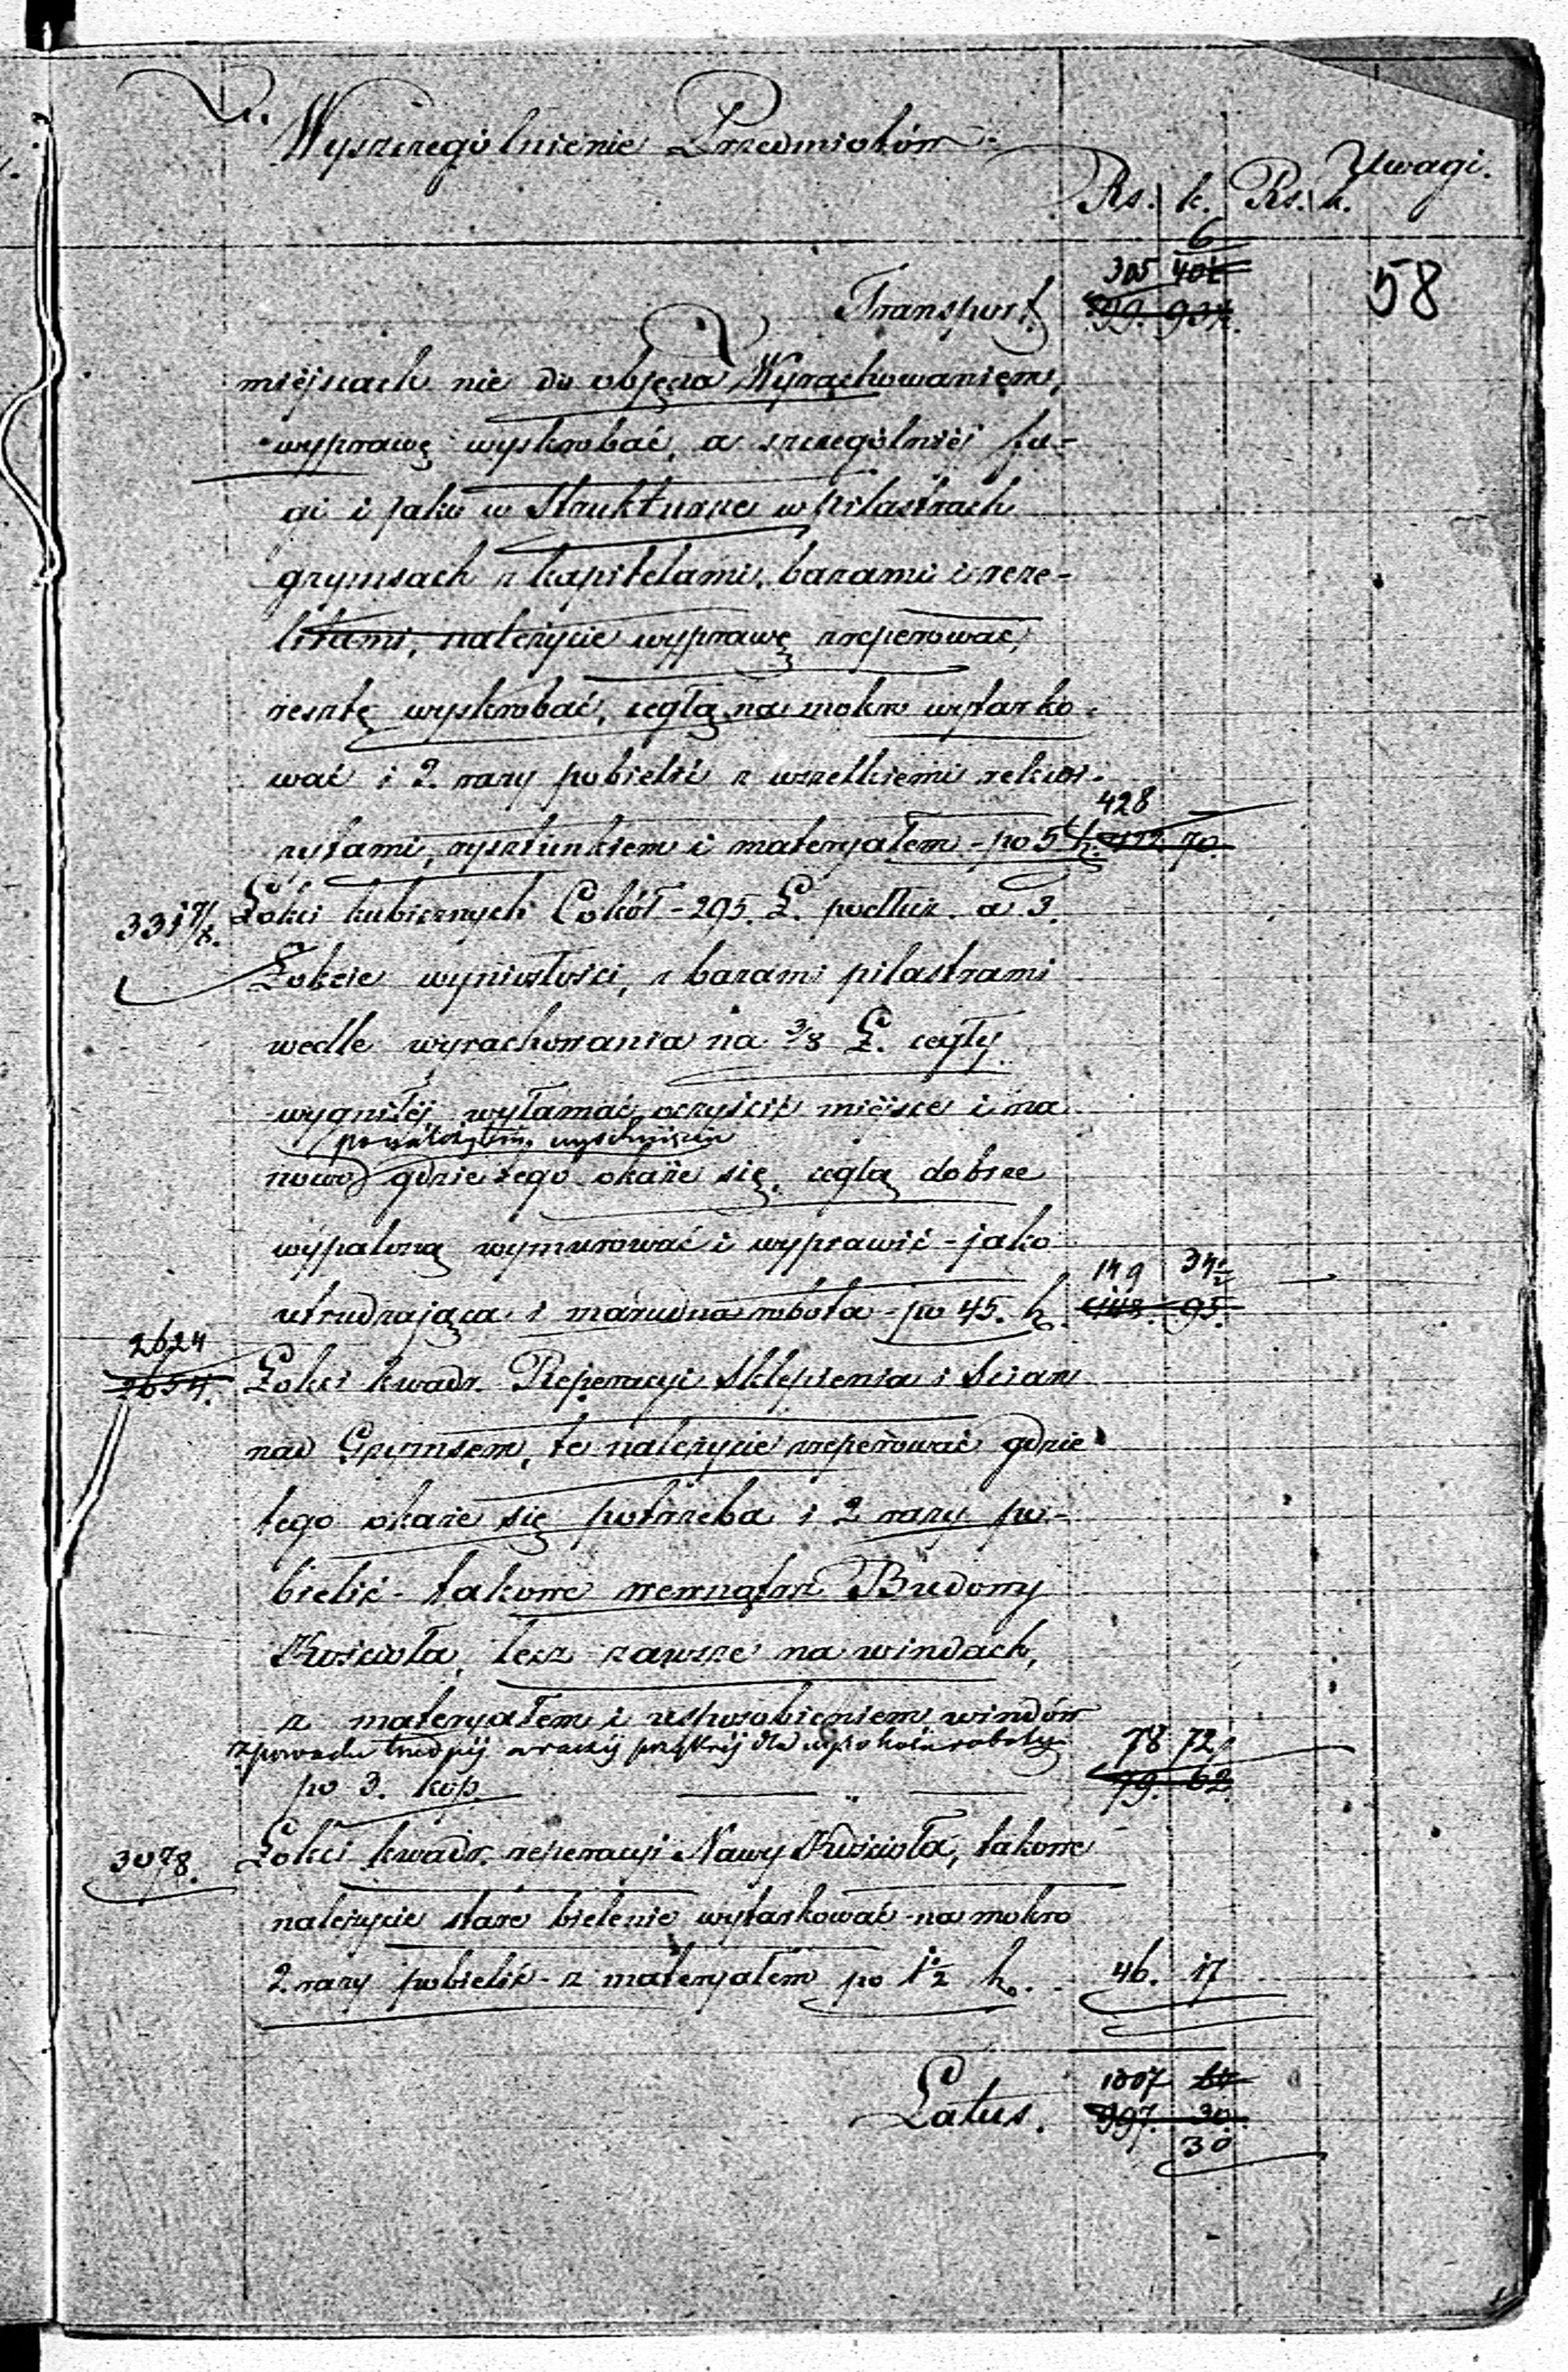 Wyszczególnienie Przedmiotów
Rs. k. Rs. k. Uwagi.
6
305
58
Transport
miejscach nie do objęcia Wyrachowaniem,
wyprawę wyskrobać, a szczególniej fu-
gi i jako w Strukturze w pilastrach
grzymsach z kapitelami, bazami i
należycie wyprawę zreperować,
resztę wyskrobać, cegłą na mokro wytarko-
wać i 2. razy pobielić z wszelkiemi rekwi-
428
zytami, rysztunkiem i materyałem - po 5 k. 70.
331 7/8. Łokci kubicznych Cokół - 295. Ł. podłuż. a 3.
Łokcie wyniosłości, z bazami pilastrami
wedle wyrachowania na 3/8 Ł. cegły
wygniłéj wyłamać, oczyścić miejsce i na
nowo gdzie tego okaże się, cegłą dobrze
wypaloną wymurować i wyprawić - jako
149 34½
utrudzająca i marudna robota - po 45. k. 148. 95.
2624
2654. Łokci kwadr. Reperacyi Sklepienia i Ścian
nad Gzymsem, te należycie zreperować gdzie
tego okaże się potrzeba i 2 razy po-
bielić - takowe wewnątrz Budowy
Kościoła, lecz zawsze na windach,
z materyałem i usposobieniem windów
z powodu roboty 78 72
po 3. kop. — „ — 79. 62.
3078. Łokci kwadr. reperacyi Nawy Kościoła, takowe
należycie stare bielenie wytarkować na mokro
2. razy pobielić - z materyałem po 1½ k. 46. 17
1007 60
Latus. 997. 30.
30